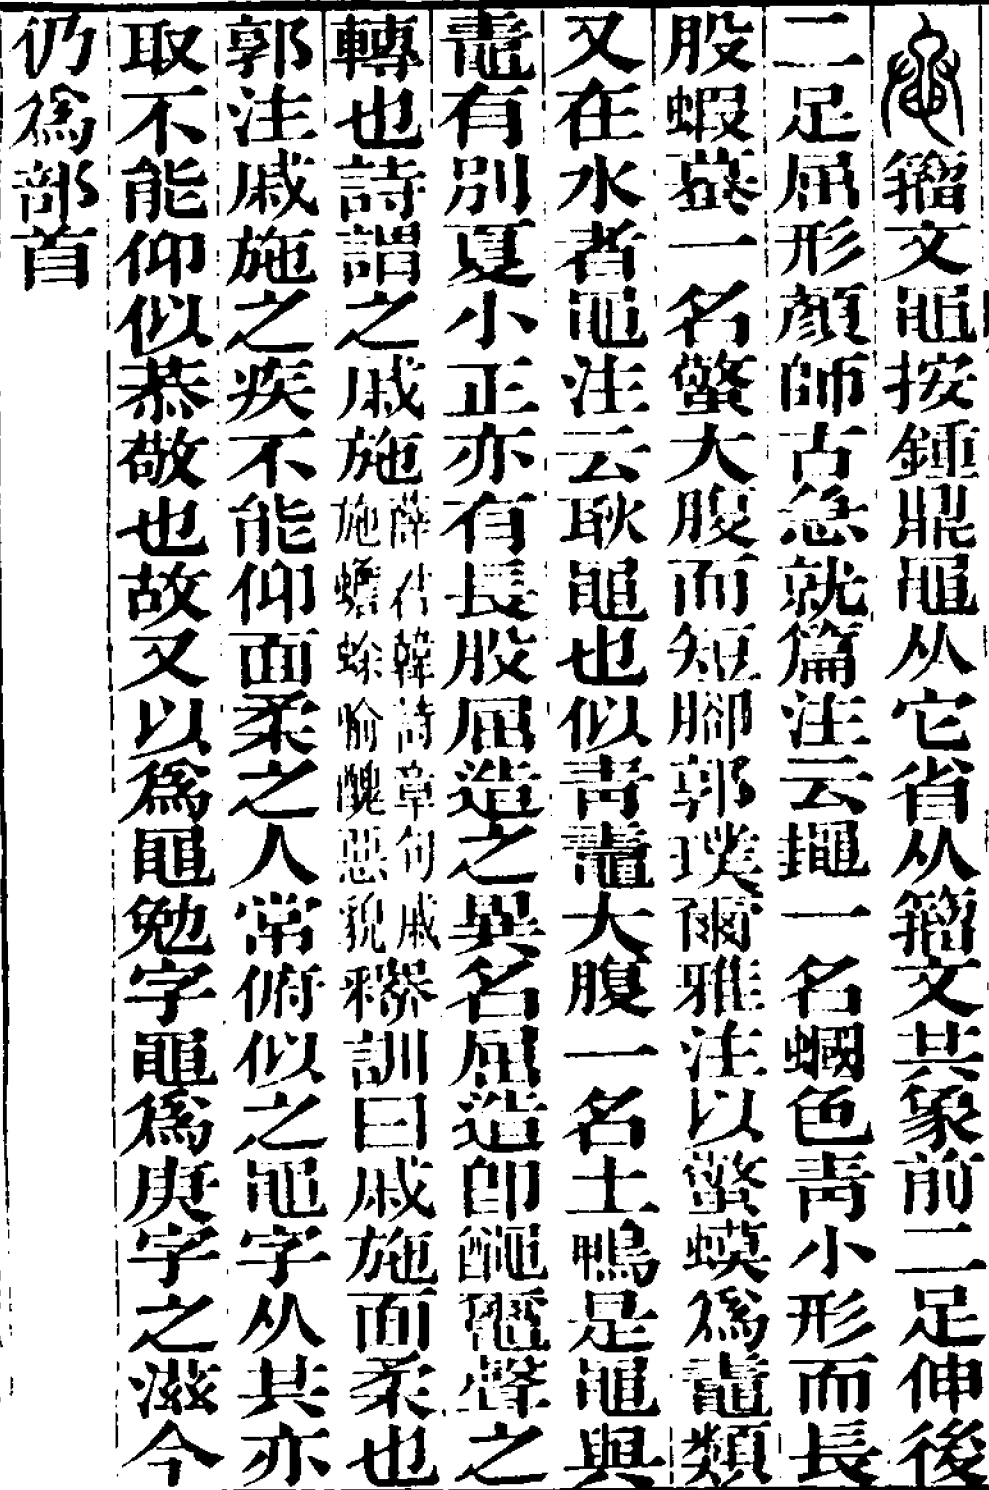 籀文黽按鍾鼎黽从它省从籀文其象前二足伸後
二足屈形顏師古急就篇注云䵷一名蟈色青小形而長
股蝦蟇一名螌大腹而短腳郭璞爾雅注以螌蟆爲鼃類
又在水者黽注云耿黽也似青鼃大腹一名土鴨是黽與
鼃有別夏小正亦有長股屈造之異名屈造卽䵶鼀聲之
轉也詩謂之戚施薛君韓詩章句戚施蟾蜍喻醜惡貌釋訓曰戚施面柔也
郭注戚施之疾不能仰面柔之人常俯似之黽字从其亦
取不能仰似恭敬也故又以爲黽勉字黽爲庚字之滋今
仍爲部首